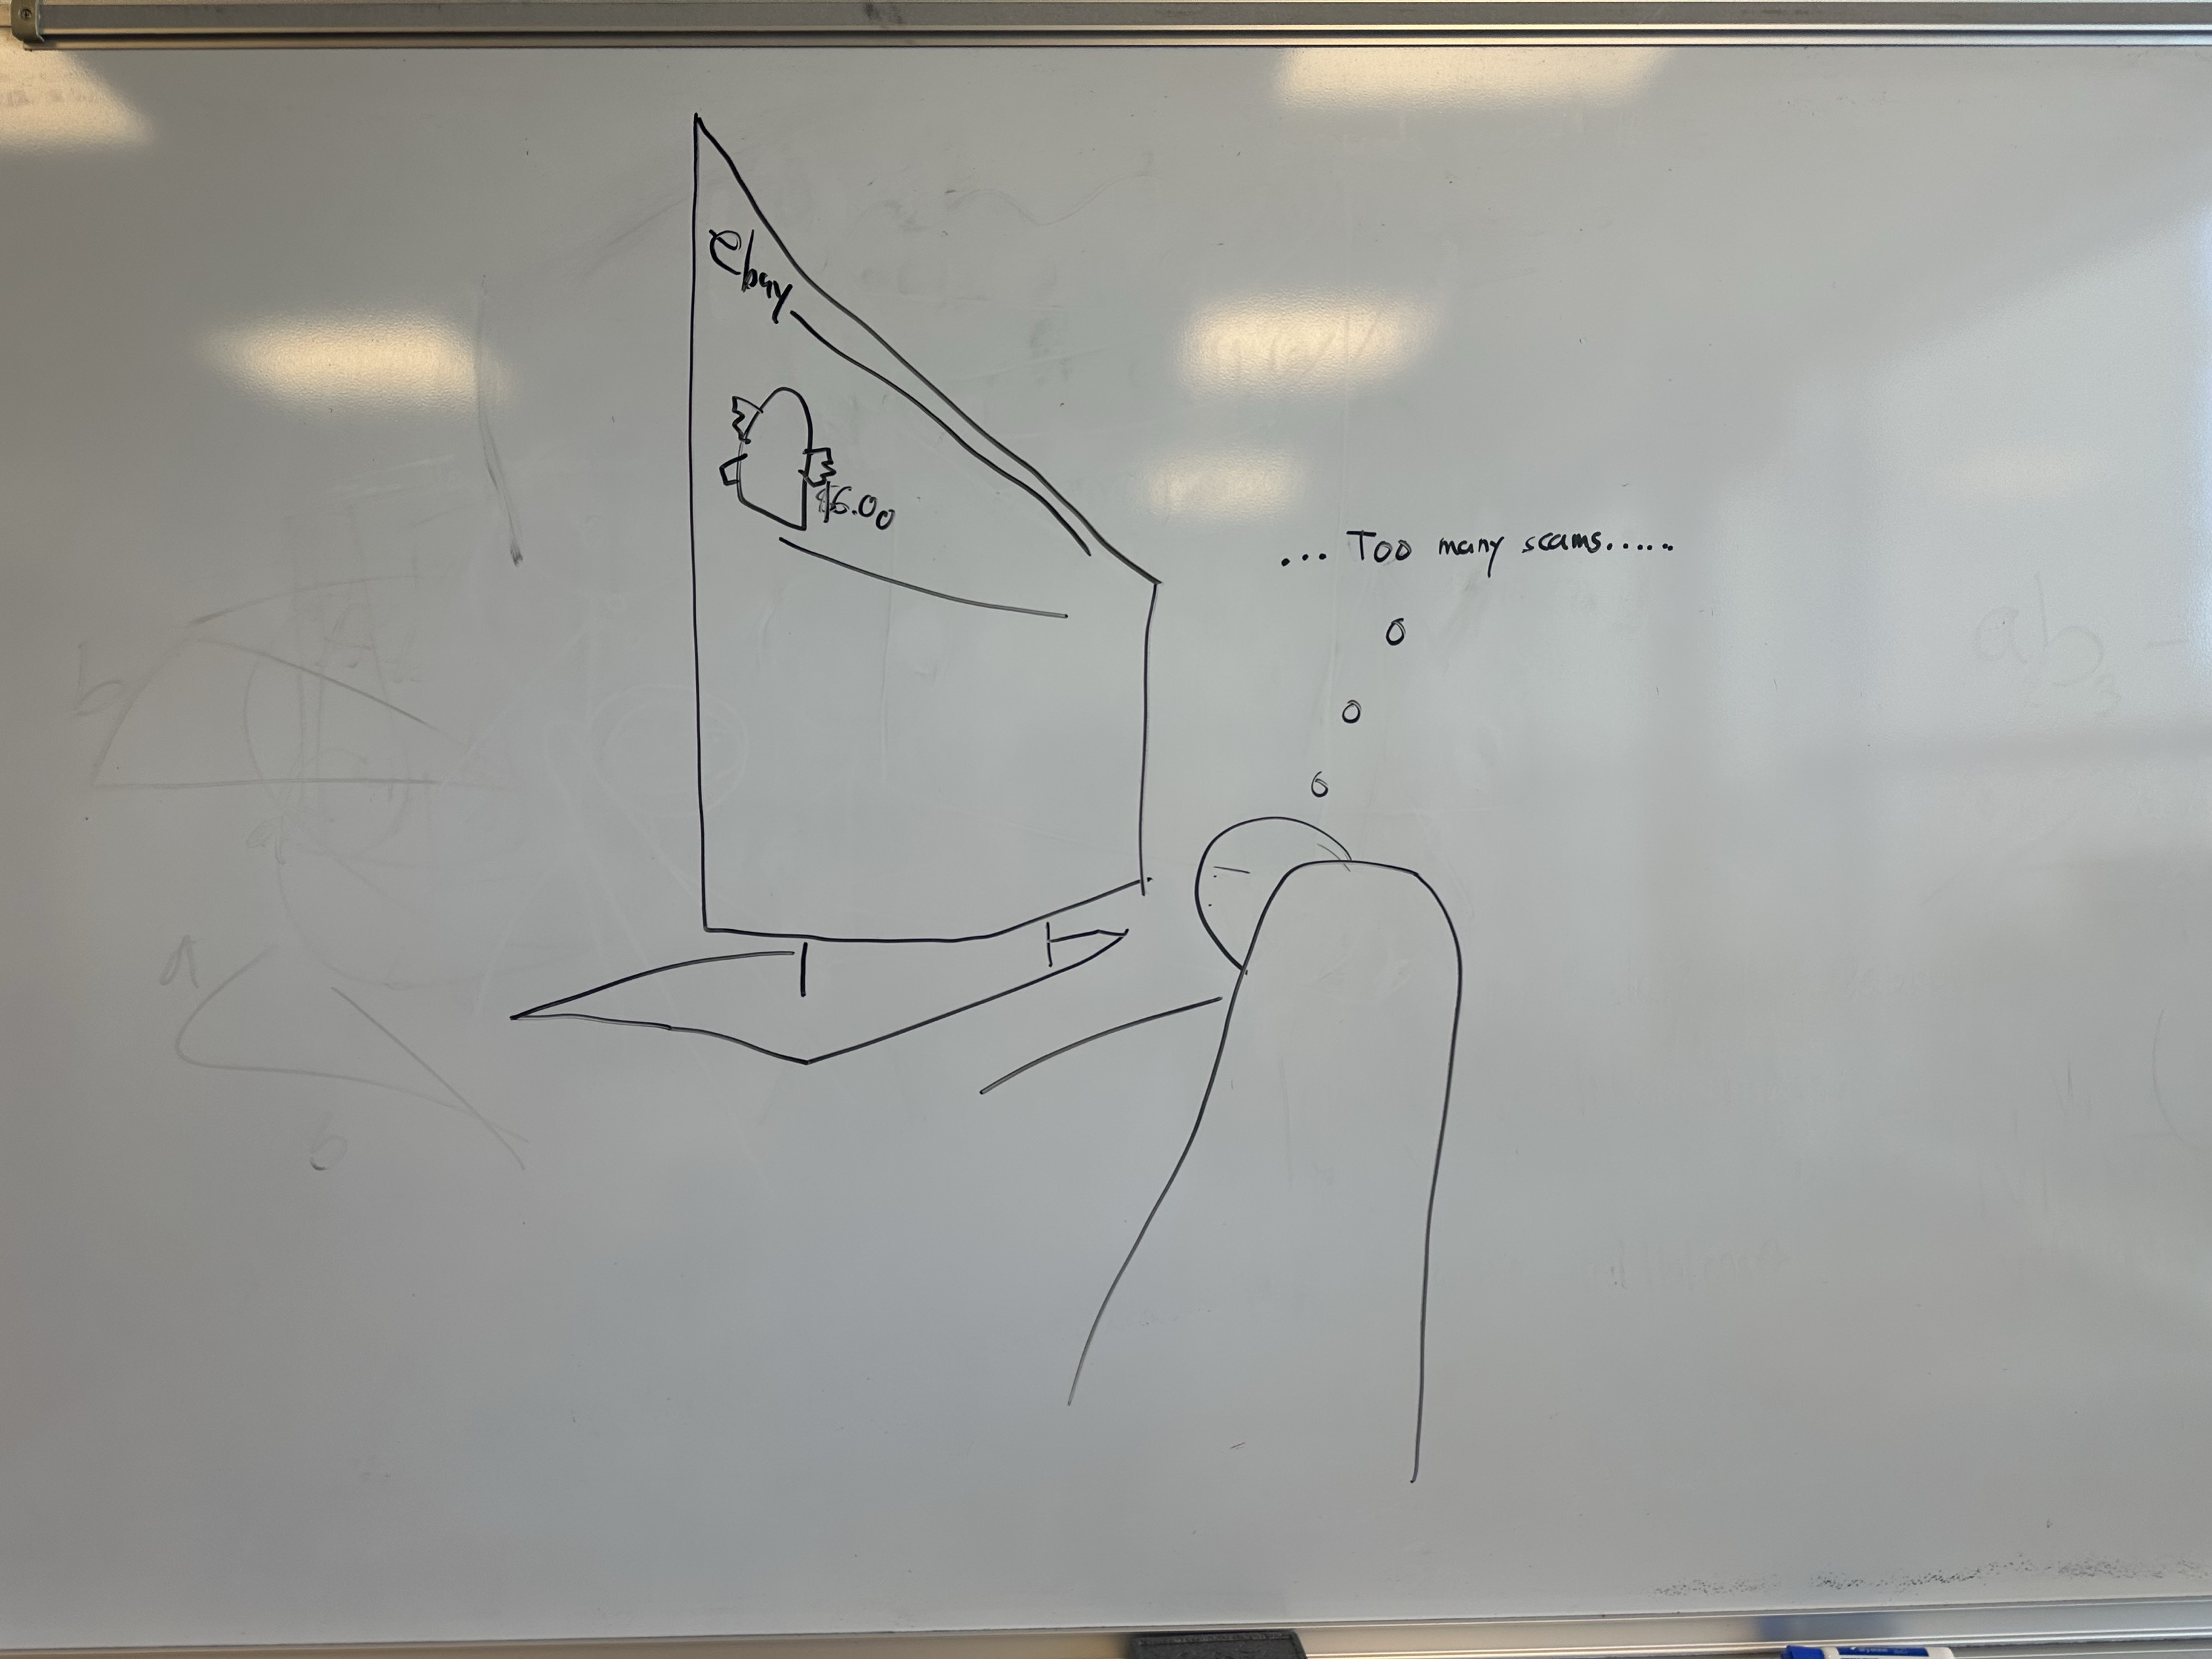 ebay
$6.00
... Too many scams......